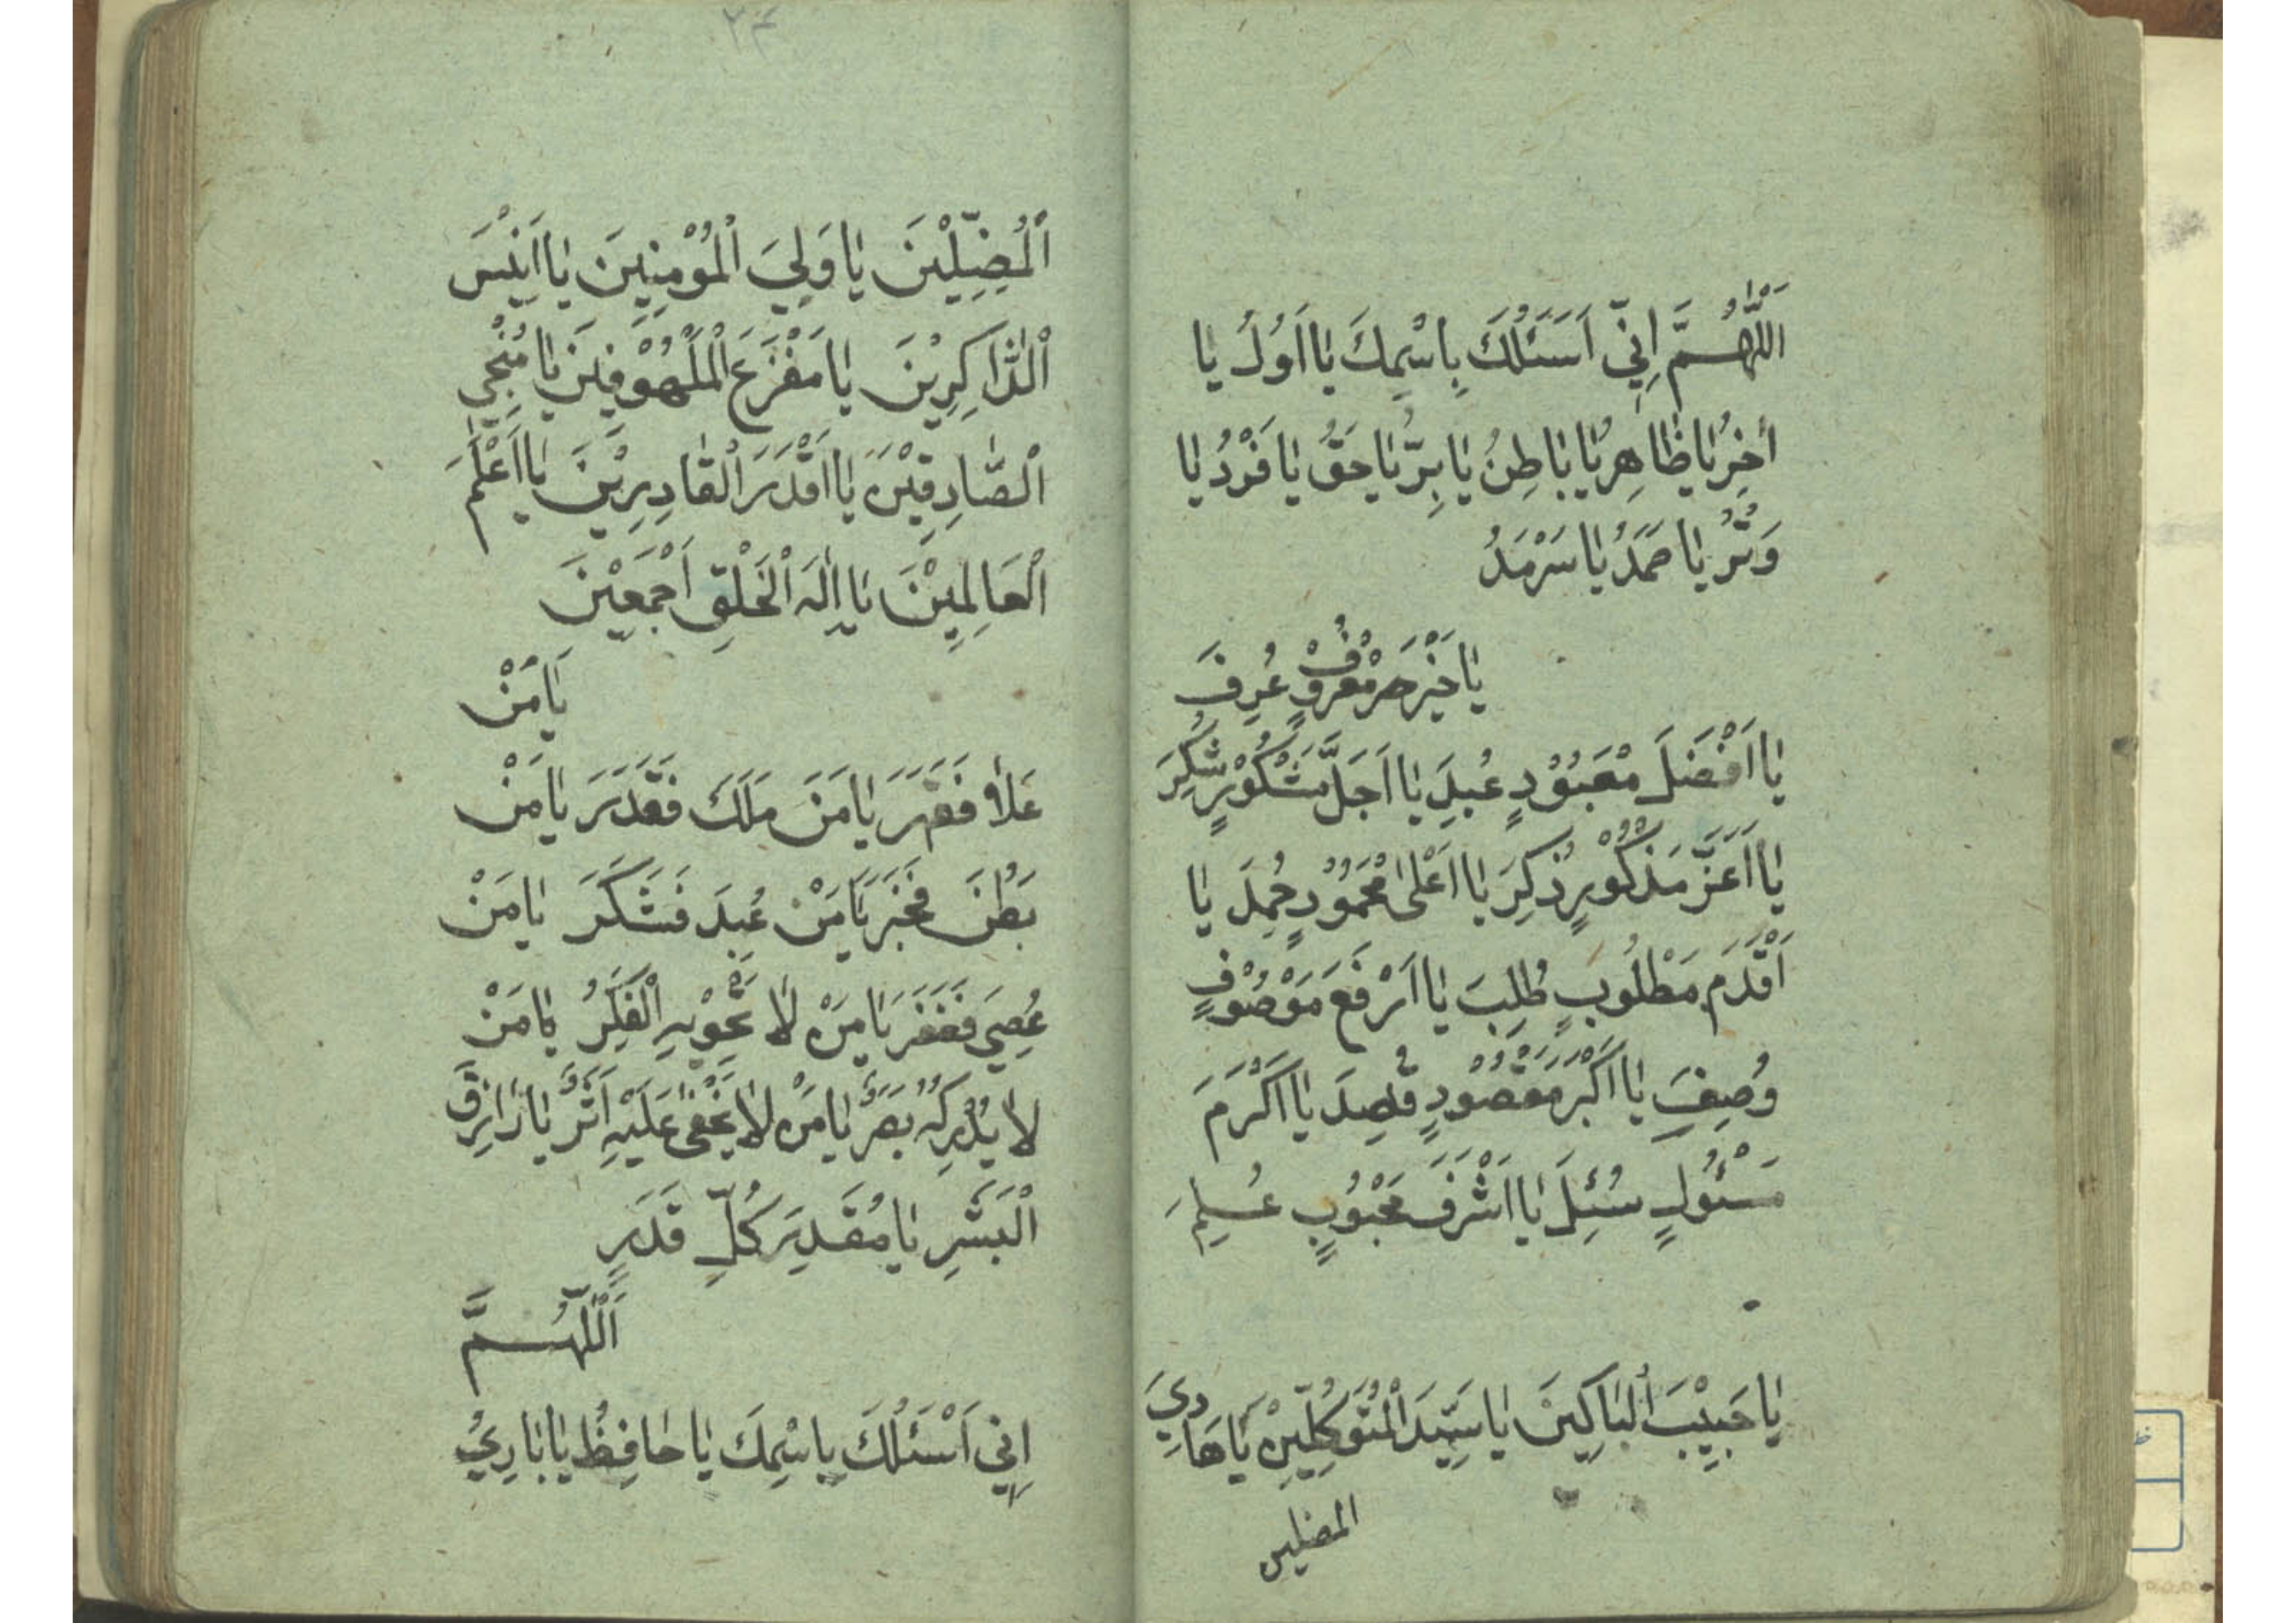 اَللّٰهُمَّ اِنِّي اَسَئَلُكَ بِاسْمِكَ يٰا اَوَّلُ يٰا
اٰخِرُ يٰا ظٰاهِرُ يٰا بٰاطِنُ يٰا بِرُّ يٰا حَقُّ يٰا فَرْدُ يٰا
وَتْرُ يٰا صَمَدُ يٰا سَرْمَدُ
يٰا خَيْرَ مَعْرُوْفٍ عُرِفَ
يٰا اَفْضَلَ مَعْبُوْدٍ عُبِدَ يٰا اَجَلَّ مَشْكُوْرٍ شُكِرَ
يٰا اَعَزَّ مَذْكُوْرٍ ذُكِرَ يٰا اَعْلٰى مَحْمُوْدٍ حُمِدَ يٰا
اَقْدَمَ مَطْلُوبٍ طُلِبَ يٰا اَرْفَعَ مَوْصُوْفٍ
وُصِفَ يٰا اَكْبَرَ مَقْصُوْدٍ قُصِدَ يٰا اَكْرَمَ
مَسْئُولٍ سُئِلَ يٰا اَشْرَفَ مَحْبُوْبٍ عُلِمَ
يٰا حَبِيْبَ الْبٰاكِيْنَ يٰا سَيِّدَ الْمُتَوَكِّلِيْنَ يٰا هٰادِيَ
المضلين
۲۴
اَلْمُضِلِّيْنَ يٰا وَلِيَ الْمُوْمِنِيْنَ يٰا اَنِيْسَ
الْذّٰاكِرِيْنَ يٰا مَفْزَعَ الْمَلْهُوْفِيْنَ يٰا مُنْجِيَ
الْصّٰادِقِيْنَ يٰا اَقْدَرَ الْقٰادِرِيْنَ يٰا اَعْلَمَ
الْعٰالِمِيْنَ يٰا اِلٰهَ الْخَلْقِ اَجْمَعِيْنَ
يٰا مَنْ
عَلاٰ فَقَهَرَ يٰا مَنْ مَلَكَ فَقَدَرَ يٰا مَنْ
بَطَنَ فَخَبَرَ يٰا مَنْ عُبِدَ فَشَكَرَ يٰا مَنْ
عُصِيَ فَغَفَرَ يٰا مَنْ لاٰ تَحْوِيْهِ الْفِكَرُ يٰا مَنْ
لاٰ يُدْرِكُهُ بَصَرٌ يٰا مَنْ لاٰ يَخْفٰى عَلَيْهِ اَثَرٌ يٰا رٰازِقَ
الْبَشَرِ يٰا مُقَدِّرَ كُلِّ قَدَرٍ
اَللّٰهُمَّ
اِنِّي اَسْئَلُكَ بِاسْمِكَ يٰا حٰافِظُ يٰا بٰارِيُ